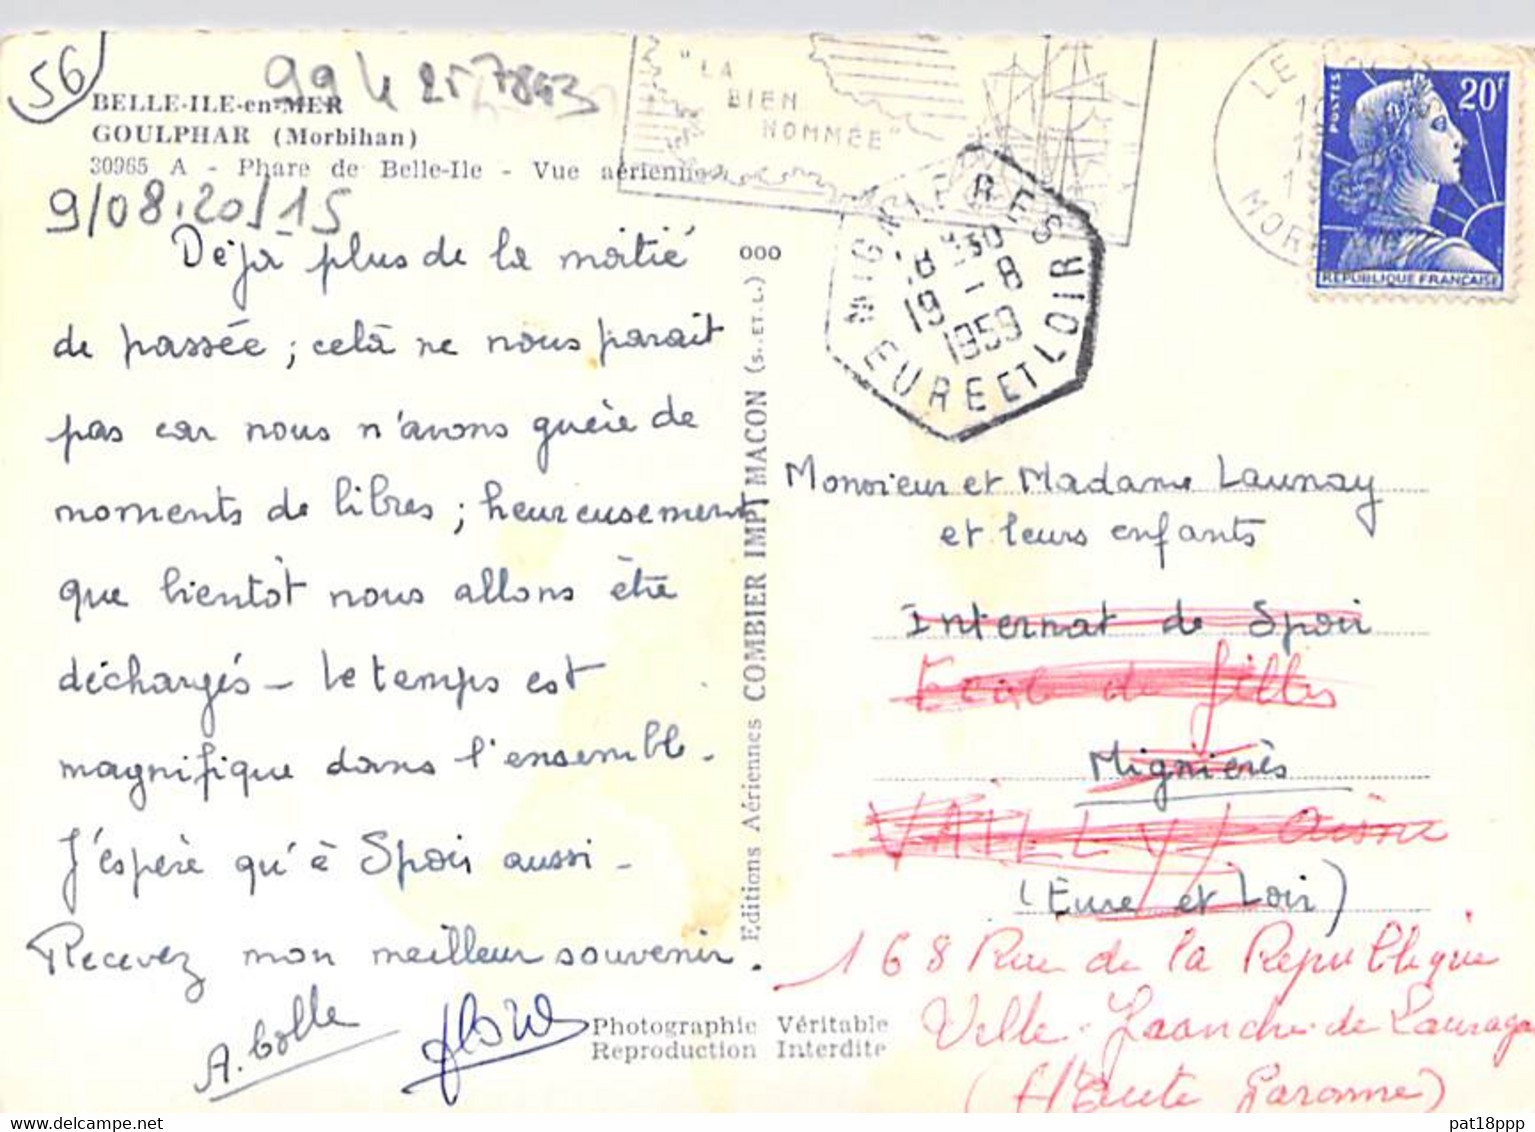 56
99 4 25 7843
BELLE-ILE-en-MER
GOULPHAR (Morbihan)
30965 A - Phare de Belle-Ile - Vue aérienne
9/08.2015
Déjà plus de la moitié
de passée ; celà ne nous parait
pas car nous n'avons guère de
moments de libres ; heureusement
que bientôt nous allons être
déchargés - Le temps est
magnifique dans l'ensemble.
J'espère qu'à Spoir aussi -
Recevez mon meilleur souvenir.
A. Colle
"LA
BIEN
NOMMÉE"
MIGNIERES
18 H30
19 - 8
1959
EURE ET LOIR
LE
MOR
POSTES
20F
REPUBLIQUE FRANÇAISE
ooo
Editions Aériennes COMBIER IMP. MACON (S.-ET-L.)
Monsieur et Madame Launay
et leurs enfants
Internat de Spoir
Ecole de filles
Mignières
VAILLY / Aisne
(Eure et Loir)
168 Rue de la République
Villefranche-de-Lauraga
(Haute Garonne)
Photographie Véritable
Reproduction Interdite
pat18ppp